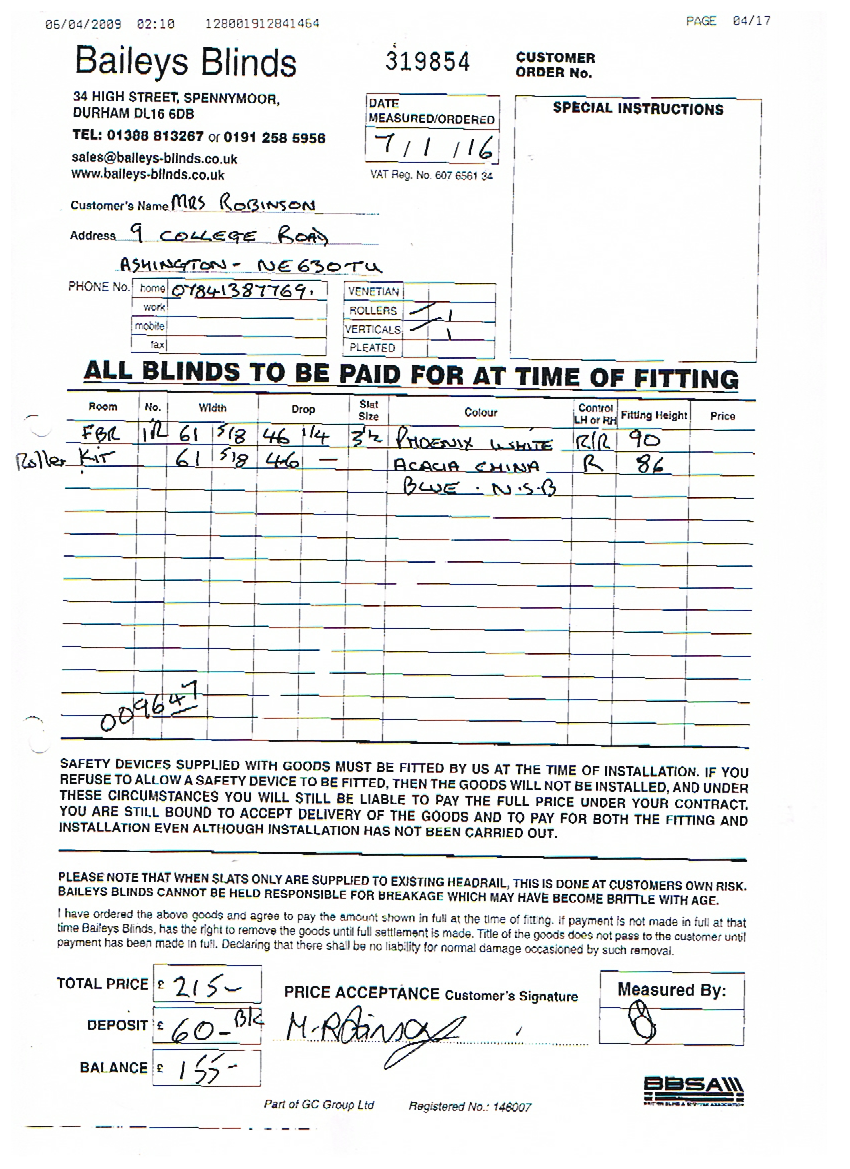 06/04/2009 02:10 128001912841464 PAGE 04/17
Baileys Blinds
319854
CUSTOMER
ORDER No.
34 HIGH STREET, SPENNYMOOR,
DURHAM DL16 6DB
TEL: 01388 813267 or 0191 258 5956
sales@baileys-blinds.co.uk
www.baileys-blinds.co.uk
DATE
MEASURED/ORDERED
7/1/16
VAT Reg. No. 607 6561 34
SPECIAL INSTRUCTIONS
Customer's Name MRS ROBINSON
Address 9 COLLEGE ROAD
ASHINGTON - NE63 0TU
PHONE No. home 07841387769.
work
mobile
fax
VENETIAN
ROLLERS 1
VERTICALS 1
PLEATED
ALL BLINDS TO BE PAID FOR AT TIME OF FITTING
Room No. Width Drop Slat Size Colour Control LH or RH Fitting Height Price
FBR 1R 61 5/8 46 1/4 3½ PHOENIX WHITE R/R 90
Roller KIT 61 5/8 46 — ACACIA CHINA R 86
BLUE . N.S.B
009647
SAFETY DEVICES SUPPLIED WITH GOODS MUST BE FITTED BY US AT THE TIME OF INSTALLATION. IF YOU
REFUSE TO ALLOW A SAFETY DEVICE TO BE FITTED, THEN THE GOODS WILL NOT BE INSTALLED, AND UNDER
THESE CIRCUMSTANCES YOU WILL STILL BE LIABLE TO PAY THE FULL PRICE UNDER YOUR CONTRACT.
YOU ARE STILL BOUND TO ACCEPT DELIVERY OF THE GOODS AND TO PAY FOR BOTH THE FITTING AND
INSTALLATION EVEN ALTHOUGH INSTALLATION HAS NOT BEEN CARRIED OUT.
PLEASE NOTE THAT WHEN SLATS ONLY ARE SUPPLIED TO EXISTING HEADRAIL, THIS IS DONE AT CUSTOMERS OWN RISK.
BAILEYS BLINDS CANNOT BE HELD RESPONSIBLE FOR BREAKAGE WHICH MAY HAVE BECOME BRITTLE WITH AGE.
I have ordered the above goods and agree to pay the amount shown in full at the time of fitting. If payment is not made in full at that
time Baileys Blinds, has the right to remove the goods until full settlement is made. Title of the goods does not pass to the customer until
payment has been made in full. Declaring that there shall be no liability for normal damage occasioned by such removal.
TOTAL PRICE £ 215-
DEPOSIT £ 60- BK
BALANCE £ 155-
PRICE ACCEPTANCE Customer's Signature
M. Robinson
Measured By:
BBSA
Part of GC Group Ltd Registered No.: 146007